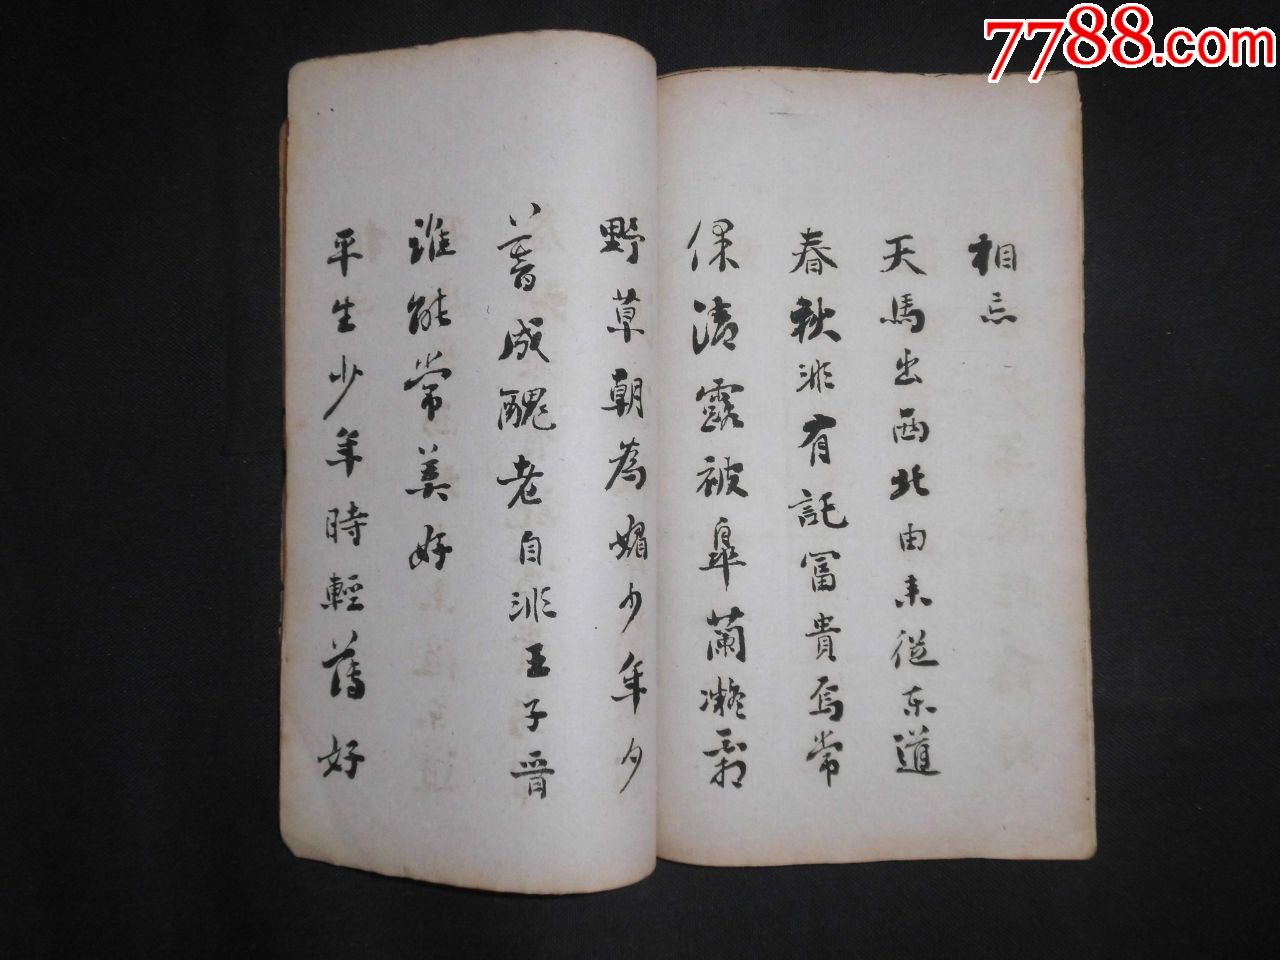 7788.com
相忘
天馬出西北由来従東道
春秋非有託富貴焉常
保清露被皐蘭凝霜
野草朝為媚少年夕
暮成醜老自非王子晋
誰能常美好
平生少年時輕薄好